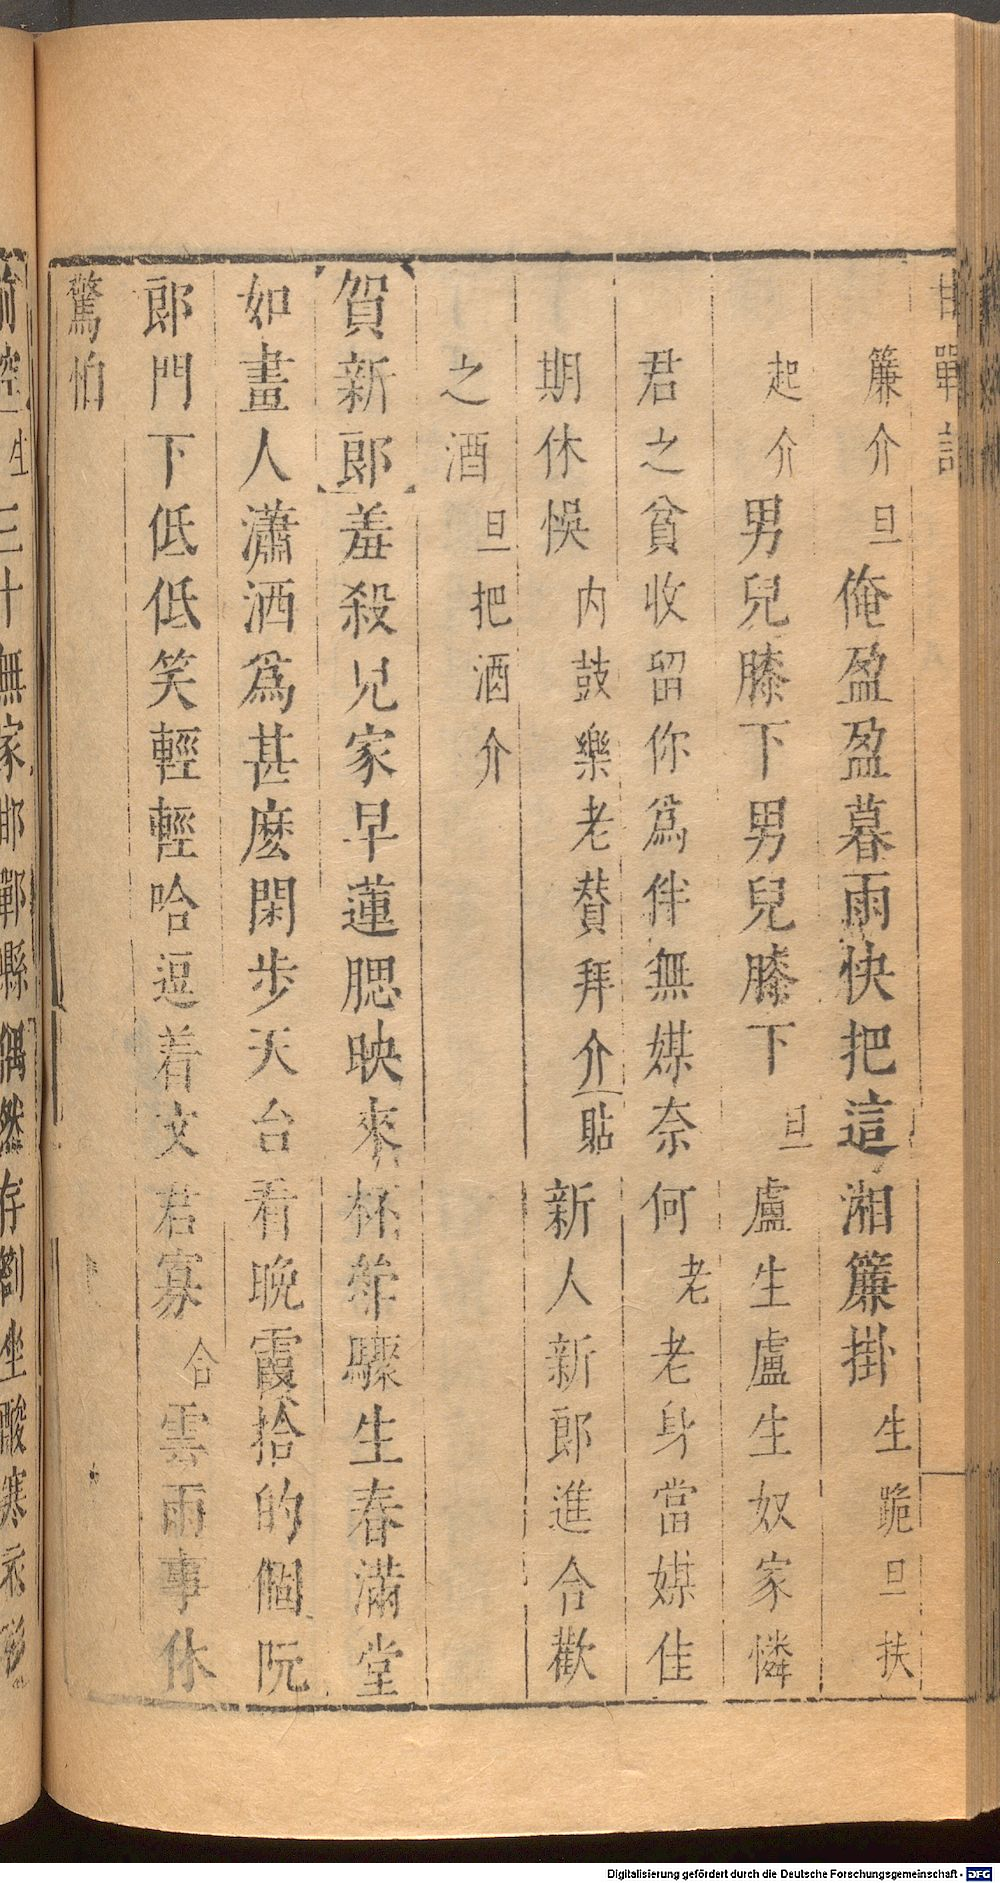 簾介旦俺盈盈暮雨快把這湘簾掛生跪旦扶
起介男兒膝下男兒膝下旦盧生盧生奴家憐
君之貧收留你爲伴無媒奈何老老身當媒佳
期休悞内鼓樂老賛拜介貼新人新郎進合歡
之酒旦把酒介
賀新郎羞殺兒家早蓮腮映來杯斝驟生春滿堂
如畫人瀟洒爲甚麽閑步天台看晩霞拾的個阮
郎門下低低笑輕輕哈逗着文君寡合雲雨事休
驚怕
三十無家邯鄲縣偶然存劄坐酸寒
Digitalisierung gefördert durch die Deutsche Forschungsgemeinschaft - DFG